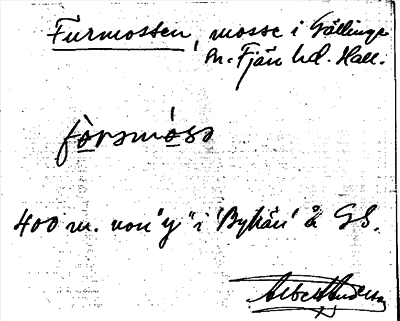 Furmossen, mosse i Gällinge
sn. Fjäre hd. Hall.
fòrsmóss
400 m. von 'y' i 'Bykärr' å GS.
Albert Anderss